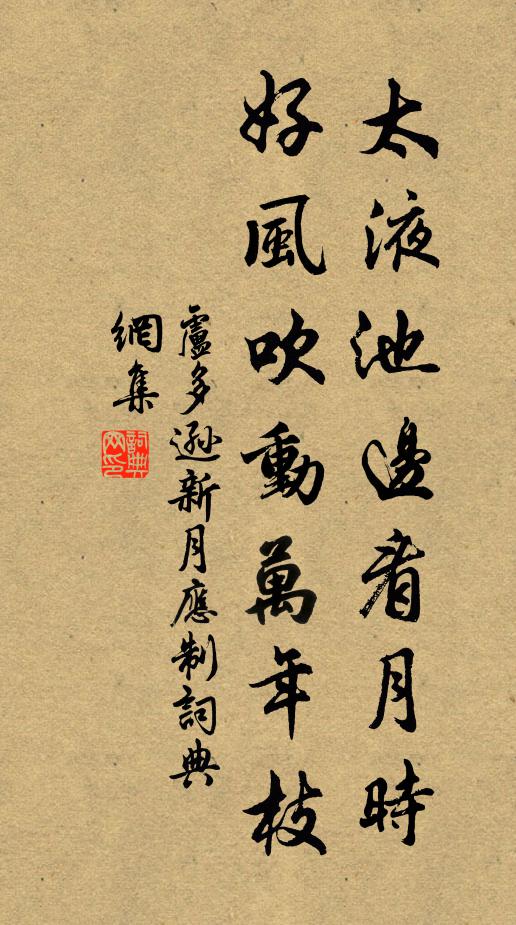 太液池邊看月時
好風吹動萬年枝
盧多遜新月應制詞典
網集
詞典網印